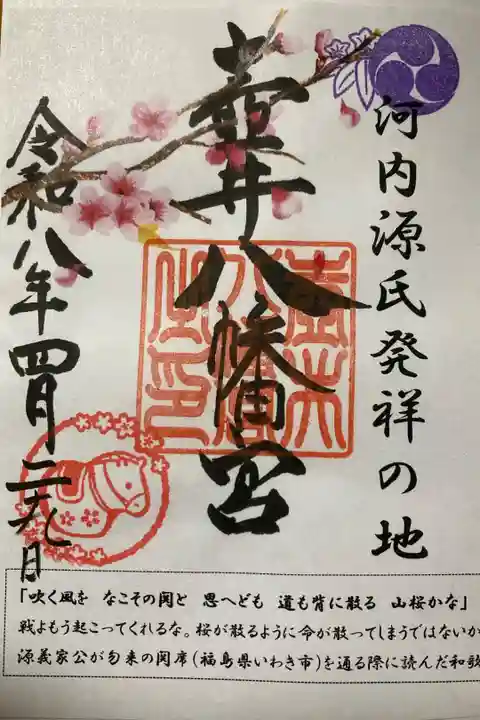 河内源氏発祥の地
壷井八幡宮
令和八年四月二十九日
「吹く風を なこその関と 思へども 道も背に散る 山桜かな」
戦よもう起こってくれるな。桜が散るように命が散ってしまうではないか
源義家公が勿来の関席(福島県いわき市)を通る際に読んだ和歌